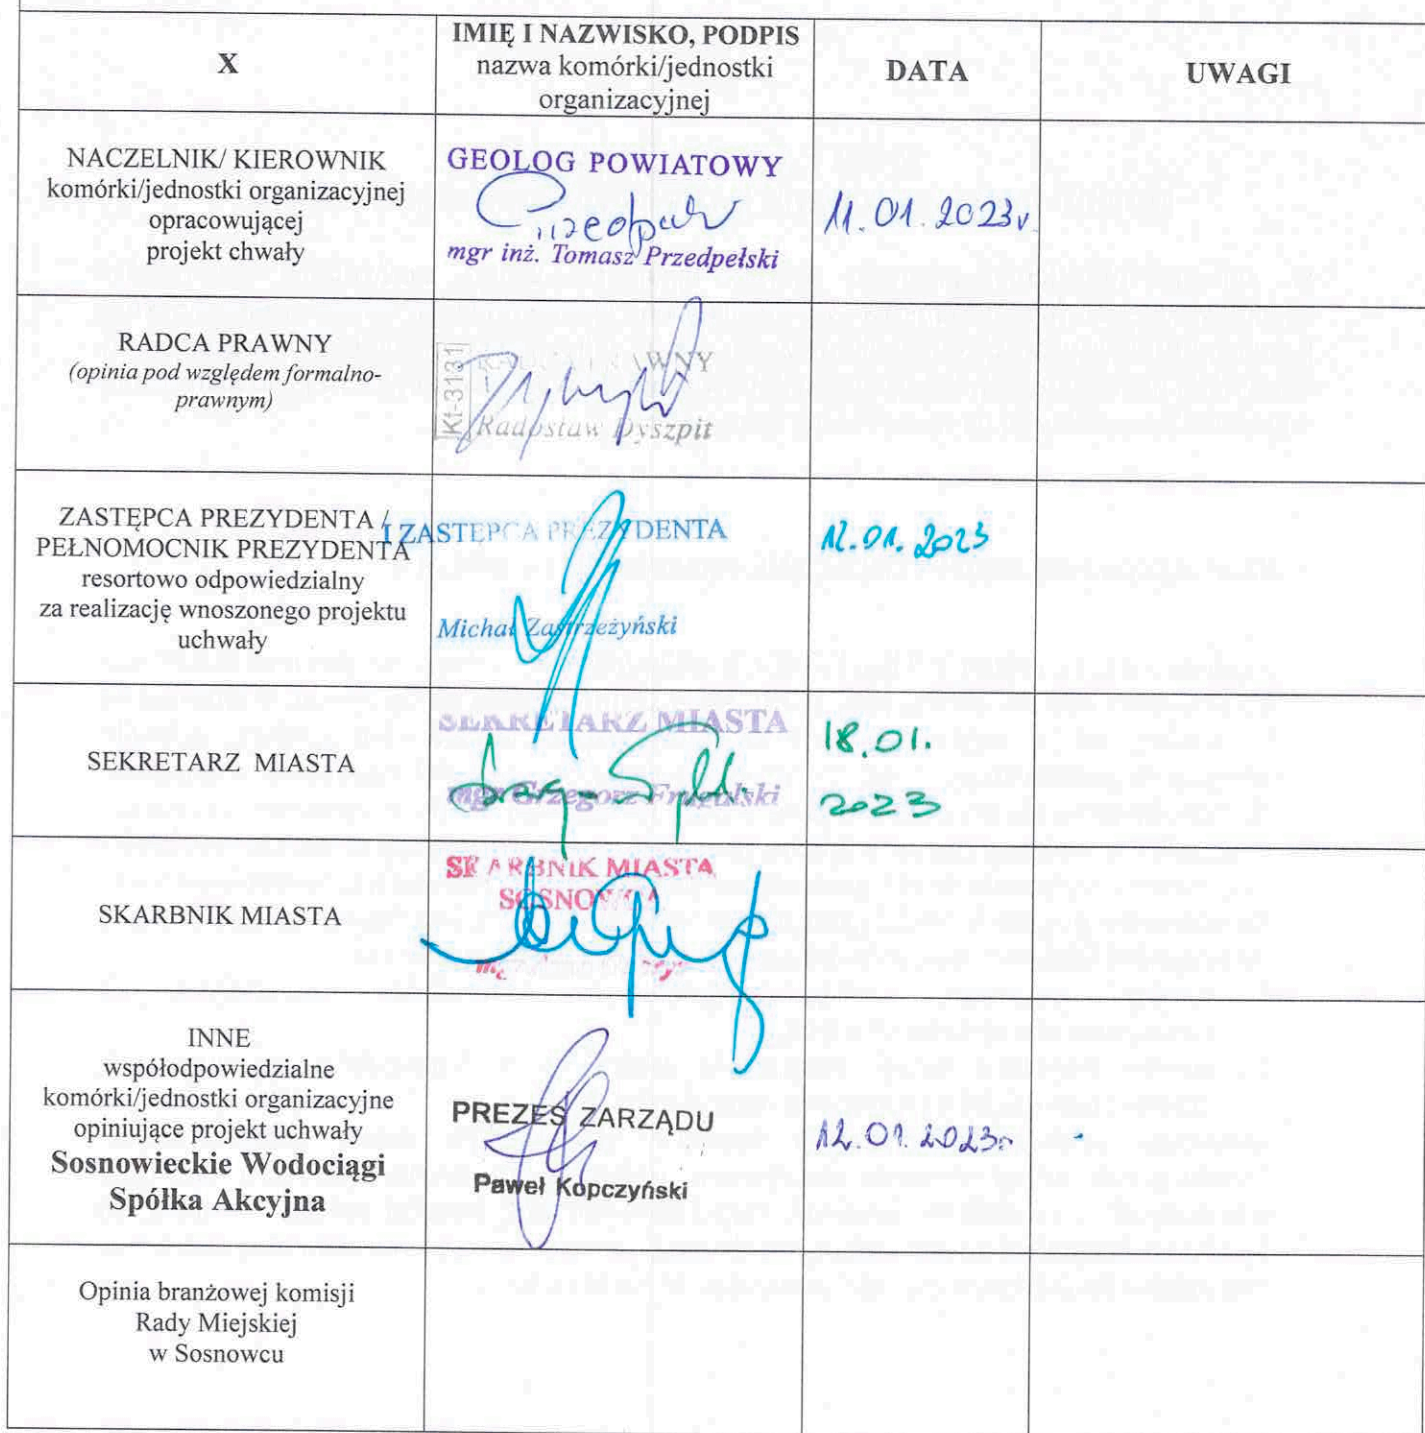 X
IMIĘ I NAZWISKO, PODPIS
nazwa komórki/jednostki
organizacyjnej
DATA
UWAGI
NACZELNIK/ KIEROWNIK
komórki/jednostki organizacyjnej
opracowującej
projekt chwały
GEOLOG POWIATOWY
mgr inż. Tomasz Przedpełski
11.01.2023r
RADCA PRAWNY
(opinia pod względem formalno-
prawnym)
Kt-3131
RADCA PRAWNY
Radosław Dyszpit
ZASTĘPCA PREZYDENTA /
PEŁNOMOCNIK PREZYDENTA
resortowo odpowiedzialny
za realizację wnoszonego projektu
uchwały
I ZASTĘPCA PREZYDENTA
Michał Zastrzeżyński
12.01.2023
SEKRETARZ MIASTA
SEKRETARZ MIASTA
mgr Grzegorz
18.01.
2023
SKARBNIK MIASTA
SKARBNIK MIASTA
SOSNOWCA
INNE
współodpowiedzialne
komórki/jednostki organizacyjne
opiniujące projekt uchwały
Sosnowieckie Wodociągi
Spółka Akcyjna
PREZES ZARZĄDU
Paweł Kopczyński
12.01.2023r.
Opinia branżowej komisji
Rady Miejskiej
w Sosnowcu